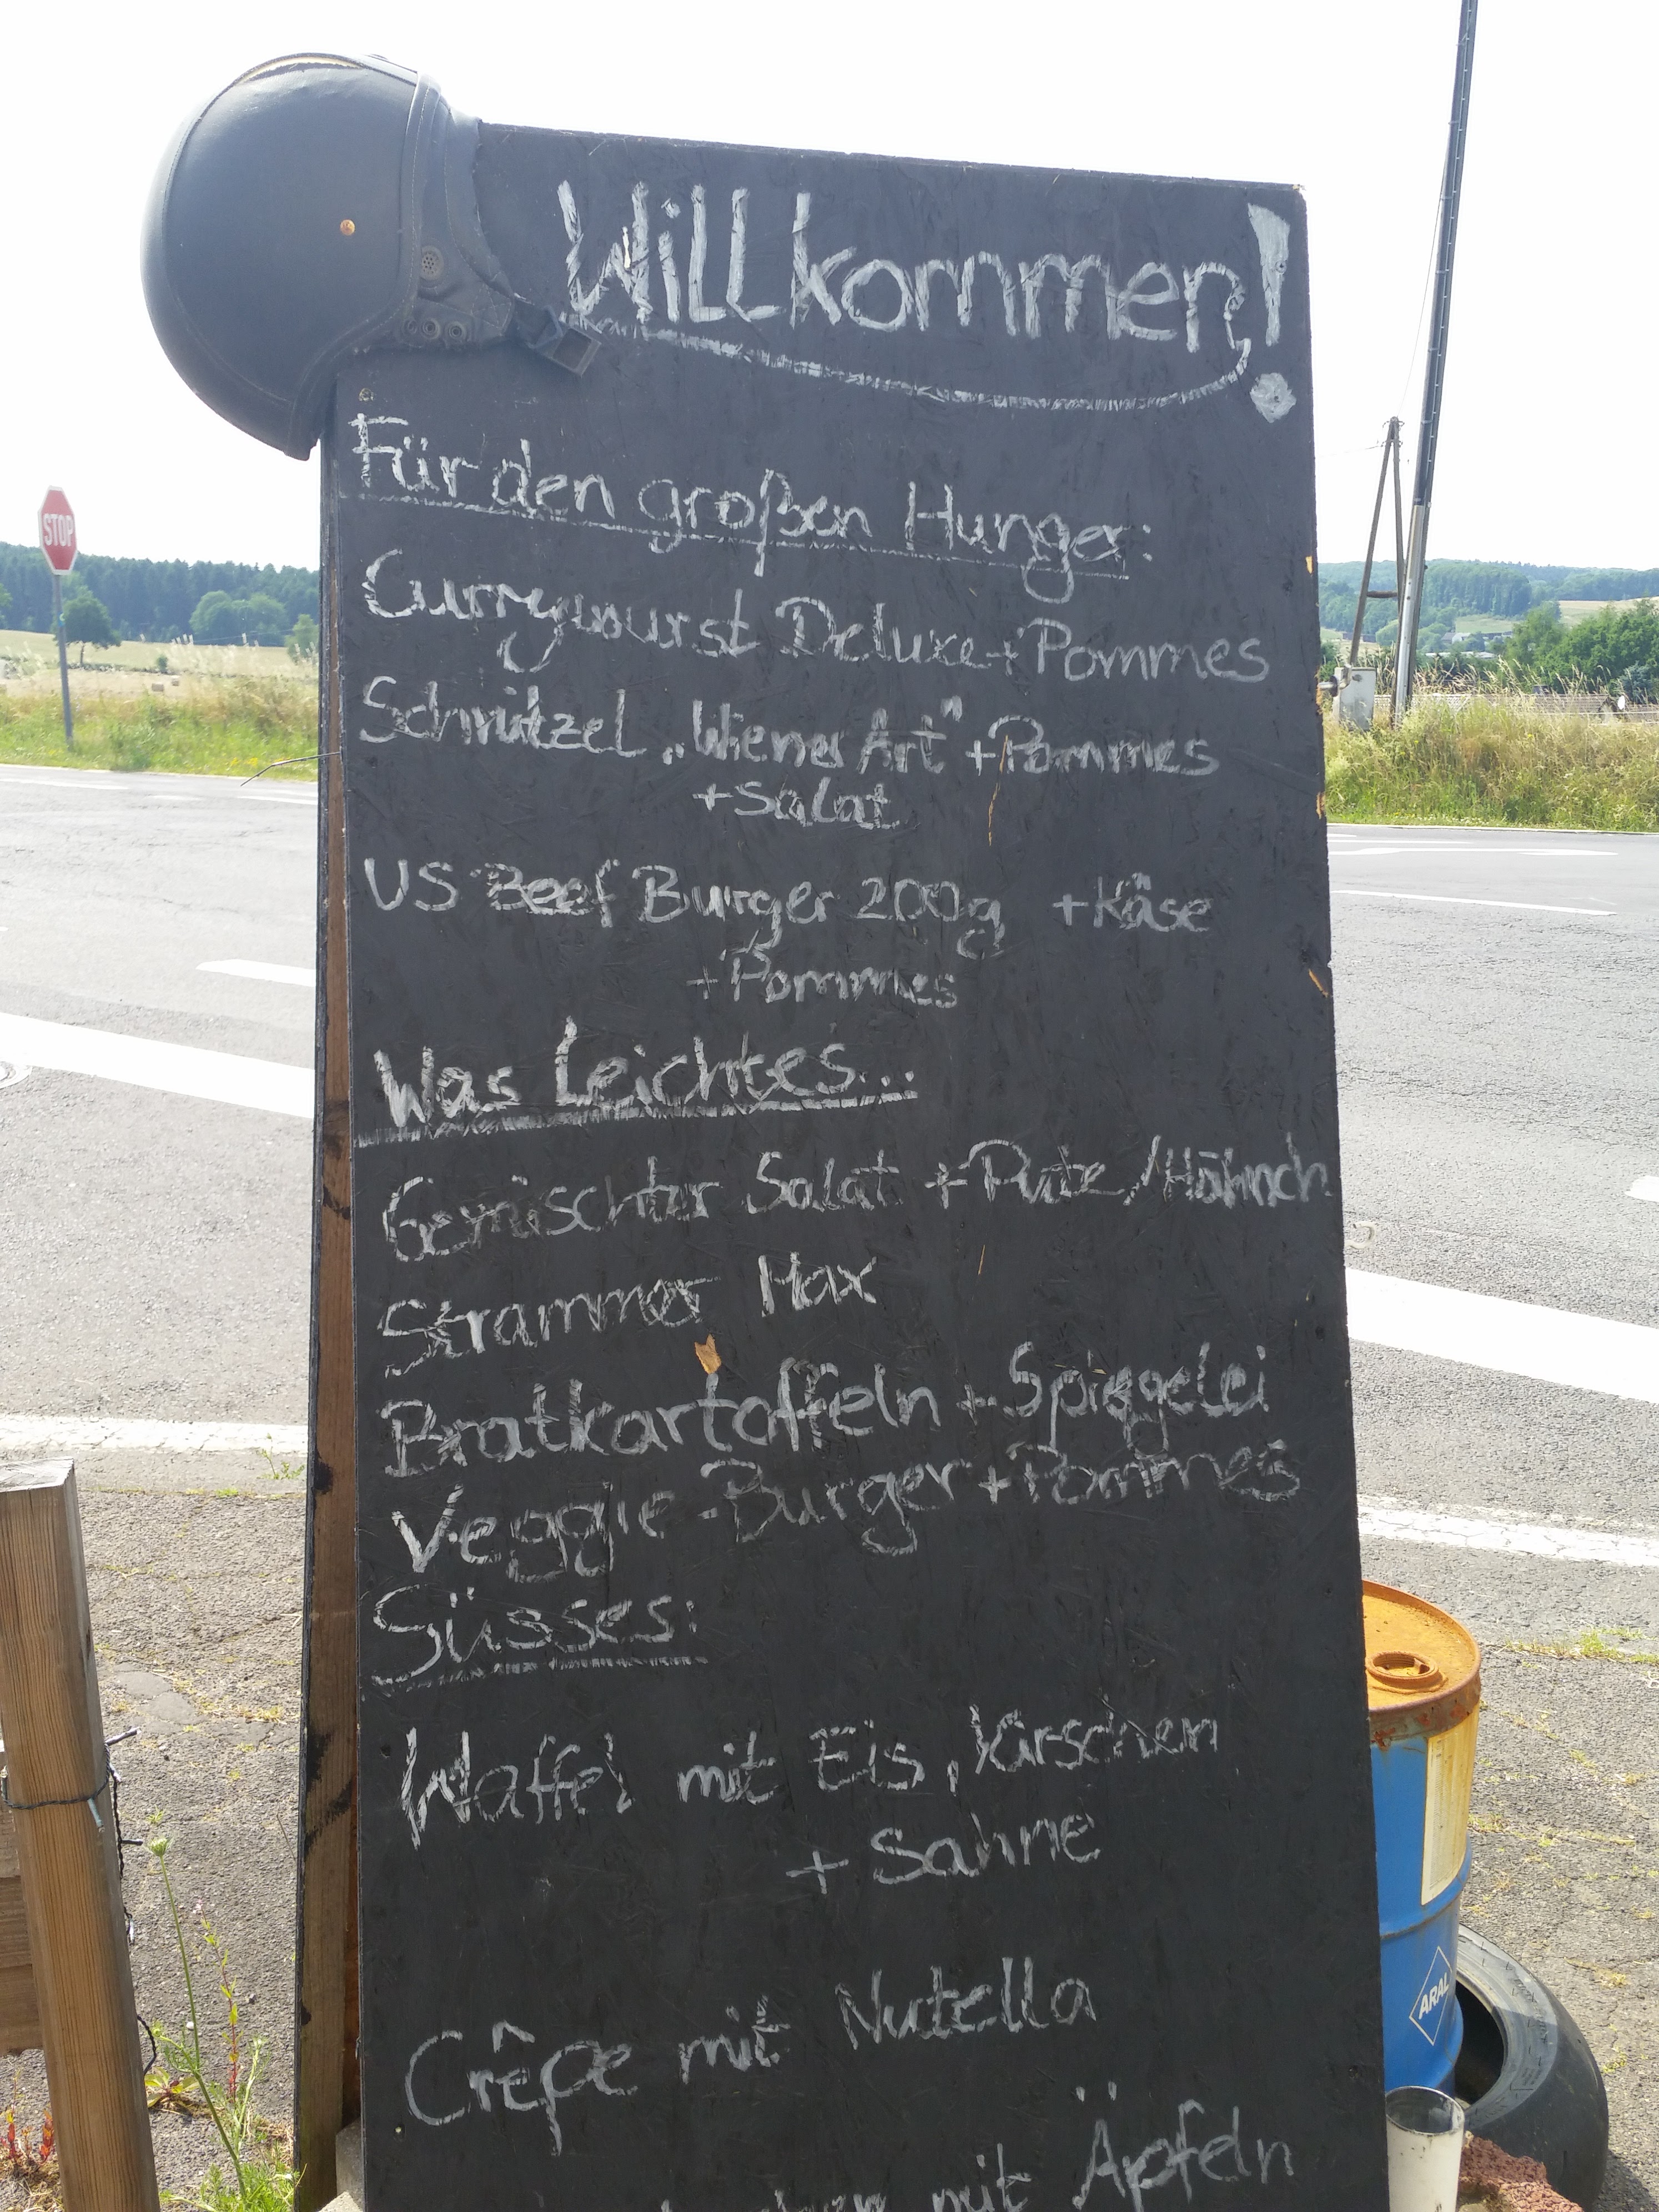 STOP
Willkommen!
Für den großen Hunger:
Currywurst Deluxe + Pommes
Schnitzel „Wiener Art" + Pommes
+ Salat
US Beef Burger 200g + Käse
+ Pommes
Was Leichtes...
Gemischter Salat + Pute / Hähnch.
Strammer Max
Bratkartoffeln + Spiegelei
Veggie-Burger + Pommes
Süsses:
Waffel mit Eis, Kirschen
+ Sahne
Crêpe mit Nutella
mit Äpfeln
ARAL